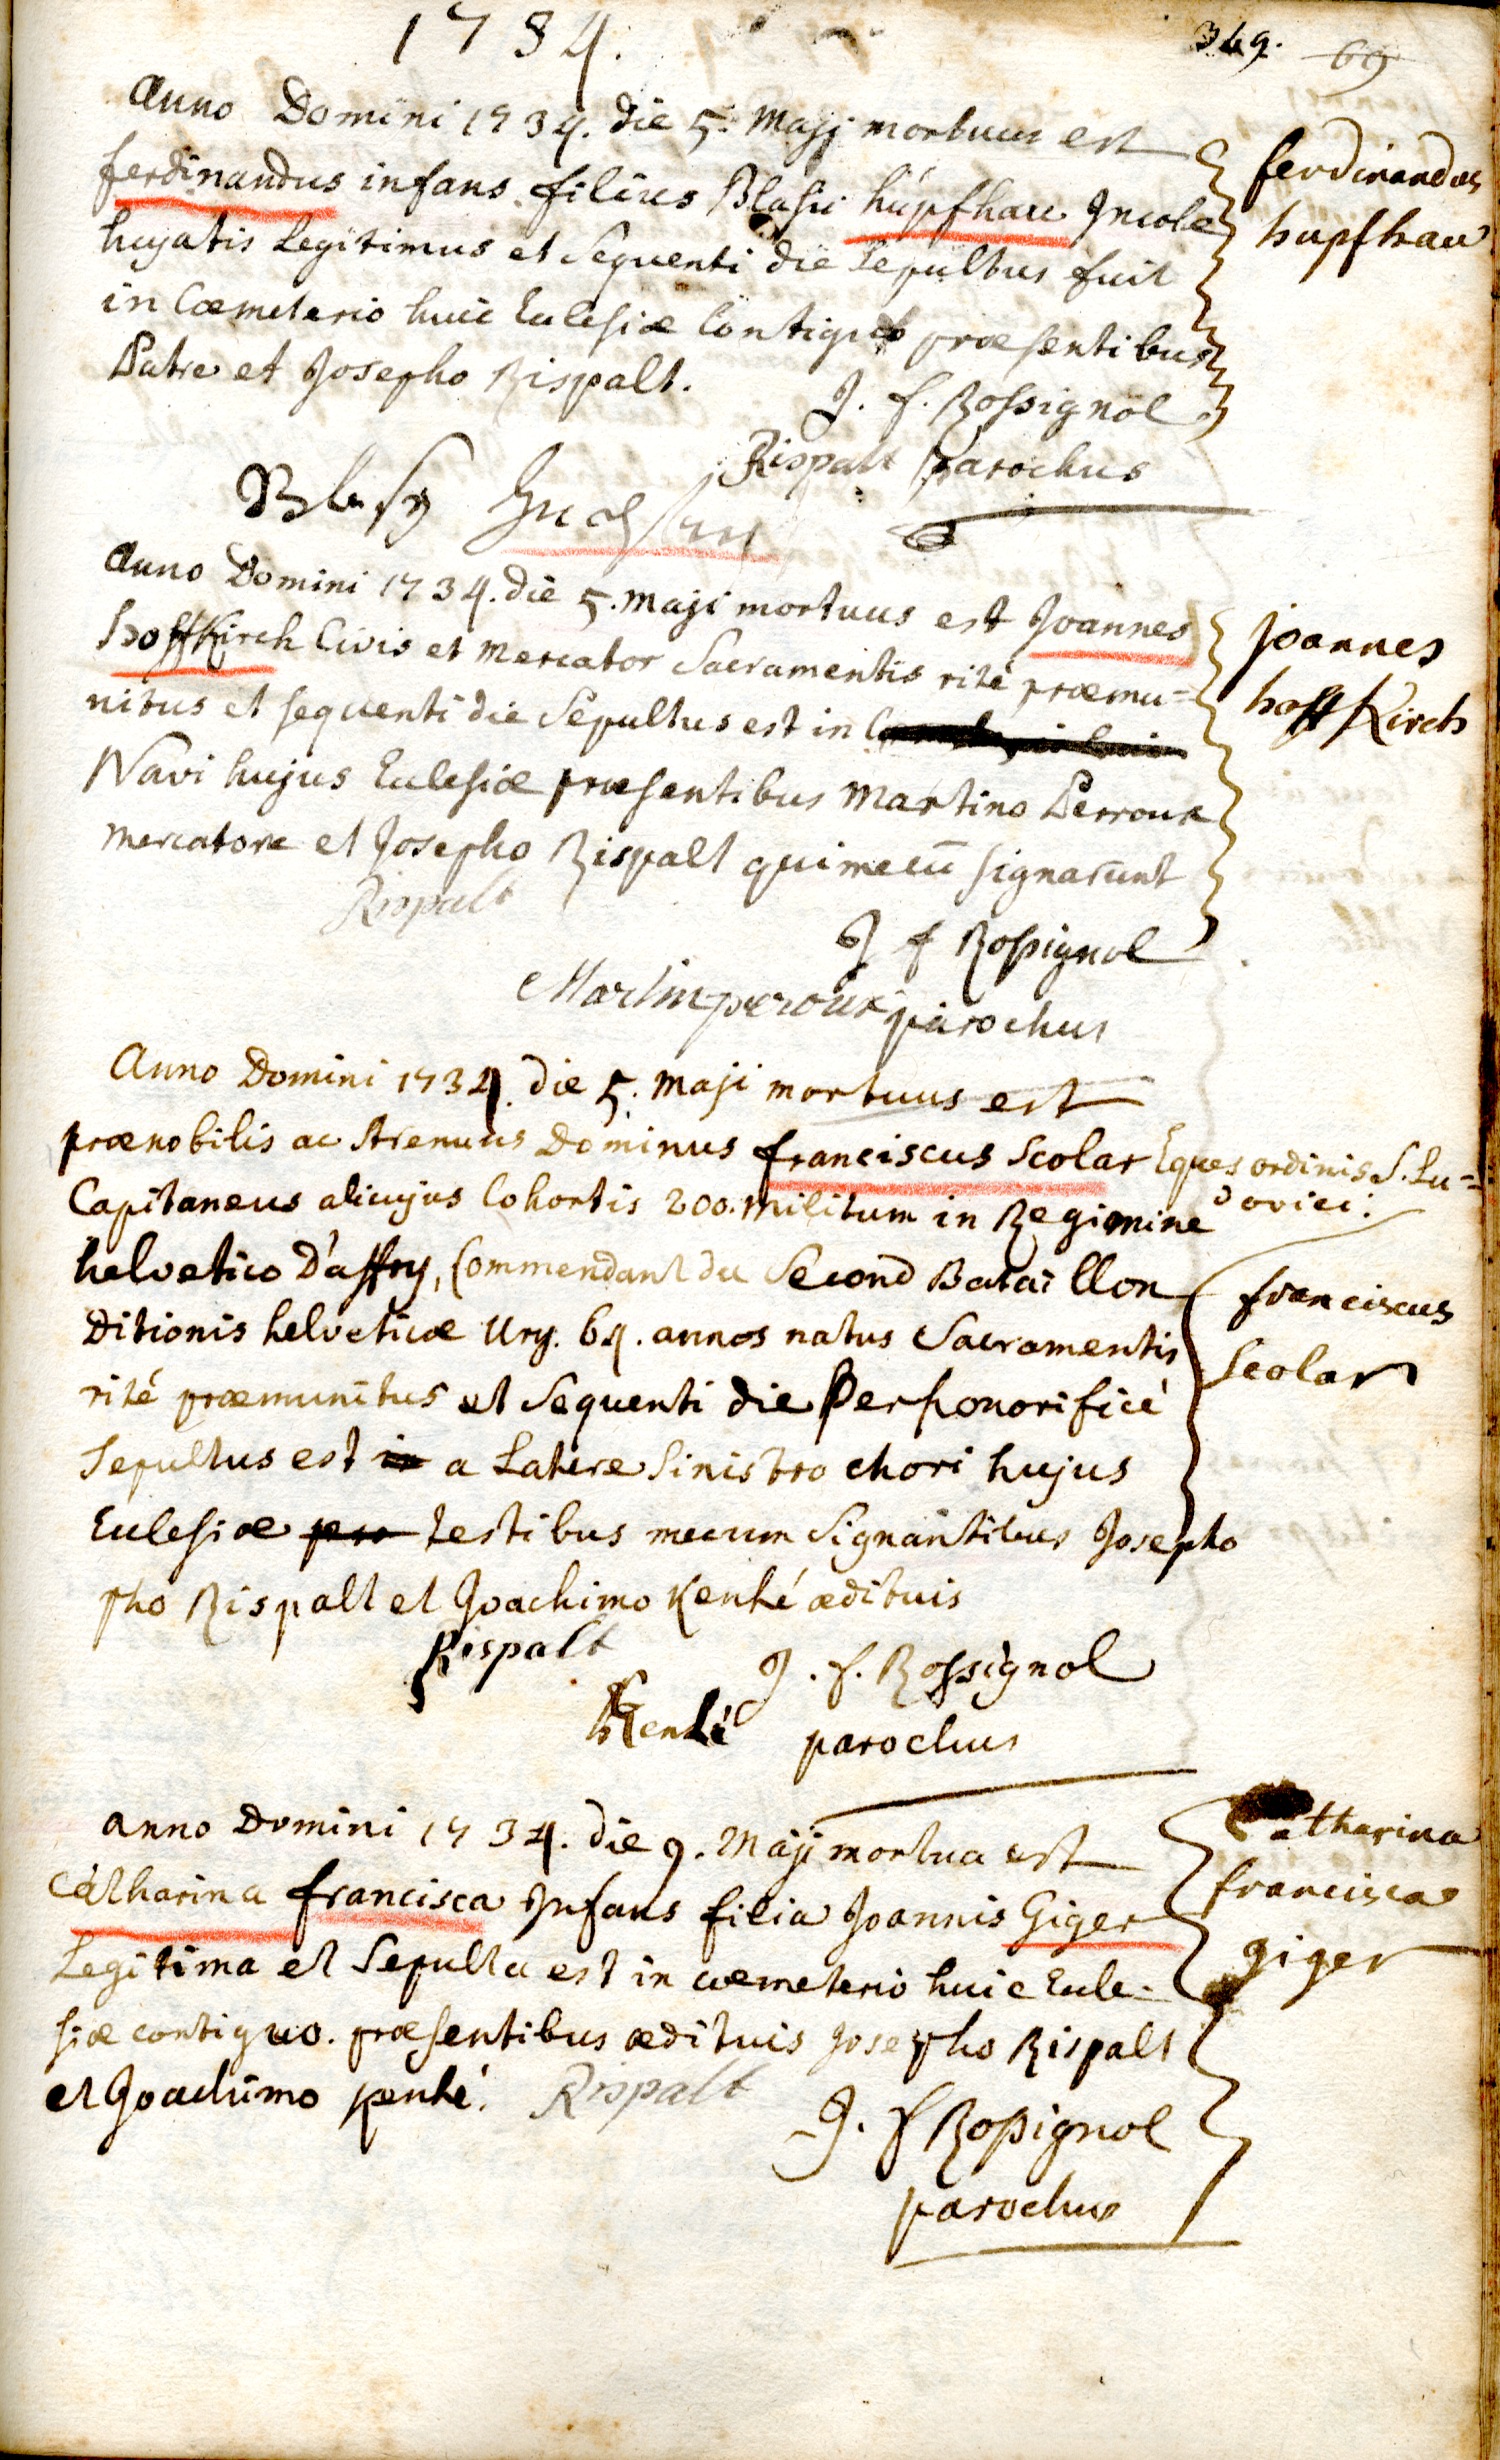 1734.
349. 69
Anno Domini 1734. die 5. Maji mortuus est
ferdinandus infans filius Blasii húpfhau Incolæ
hujatis Legitimus et Sequenti die Sepultus fuit
in Cœmeterio huic Eulesiæ Contiguo præsentibus
Patre et Josepho Rispalt.
J. f. Rossignol
Rispalt parochus
Blasy
ferdinandus
hupfhau
Anno Domini 1734. die 5. Maji mortuus est Joannes
hoffKirch Civis et Mercator Sacramentis rité præmu=
nitus et sequenti die Sepultus est in
Navi hujus Eulesiæ præsentibus Martino Perroux
Mercatore et Josepho Rispalt qui mecū signarūnt
Rispalt
J f Rossignol
Martin peroux parochus
joannes
hoffKirch
Anno Domini 1734. die 5. Maji mortuus est
prænobilis ac Strenuus Dominus franciscus Scolar Eques ordinis S. Lu=
dovici:
Capitaneus alicujus Cohortis 200. Militum in Regimine
helvetico D'affry, Commendant du Second Bataillon
Ditionis helveticæ Ury. 64. annos natus Sacramentis
rité præmunitus et Sequenti die Perhonorificé
Sepultus est in a Latere Sinistro chori hujus
Eulesiæ pro testibus mecum Signantibus Josepho
pho Rispalt et Joachimo Kenhé ædituis
Rispalt
J. f. Rossignol
Kenhé parochus
franciscus
Scolar
anno Domini 1734. die 9. Maji mortua est
Catharina francisca Infans filia Joannis Giger
Legitima et Sepulta est in cœmeterio huic Eule-
siæ contiguo. præsentibus ædituis Josepho Rispalt
et Joachimo Kenhé. Rispalt
J. f Rossignol
parochus
Catharina
francisca
giger